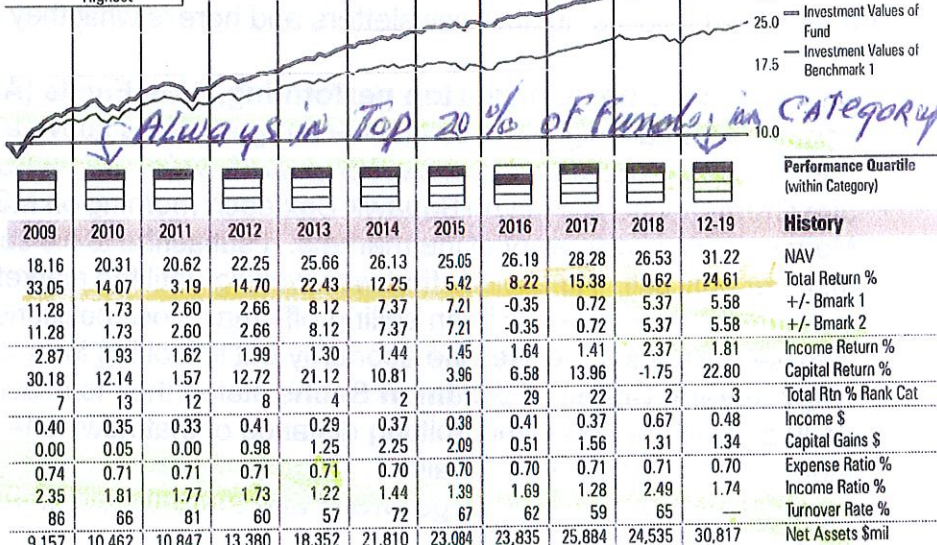 Highest
25.0
Investment Values of
Fund
Investment Values of
Benchmark 1
17.5
Always in Top 20% of Funds; in CATEGORY
10.0
Performance Quartile
(within Category)
2009 2010 2011 2012 2013 2014 2015 2016 2017 2018 12-19 History
18.16 20.31 20.62 22.25 25.66 26.13 25.05 26.19 28.28 26.53 31.22 NAV
33.05 14.07 3.19 14.70 22.43 12.25 5.42 8.22 15.38 0.62 24.61 Total Return %
11.28 1.73 2.60 2.66 8.12 7.37 7.21 -0.35 0.72 5.37 5.58 +/- Bmark 1
11.28 1.73 2.60 2.66 8.12 7.37 7.21 -0.35 0.72 5.37 5.58 +/- Bmark 2
2.87 1.93 1.62 1.99 1.30 1.44 1.45 1.64 1.41 2.37 1.81 Income Return %
30.18 12.14 1.57 12.72 21.12 10.81 3.96 6.58 13.96 -1.75 22.80 Capital Return %
7 13 12 2 1 29 22 2 3 Total Rtn % Rank Cat
0.40 0.35 0.33 0.41 0.29 0.37 0.38 0.41 0.37 0.67 0.48 Income $
0.00 0.05 0.00 0.98 .25 2.25 2.09 0.51 1.56 1.31 1.34 Capital Gains $
0.74 0.71 0.71 0.71 0.71 0.70 0.70 0.70 0.71 0.71 0.70 Expense Ratio %
2.35 1.81 1.77 1.73 1.22 1.44 1.39 1.69 1.28 2.49 1.74 Income Ratio %
86 66 81 60 57 72 67 62 59 65 — Turnover Rate %
9,157 10,462 10,847 13,380 18,352 21,810 23,084 23,835 25,884 24,535 30,817 Net Assets $mil